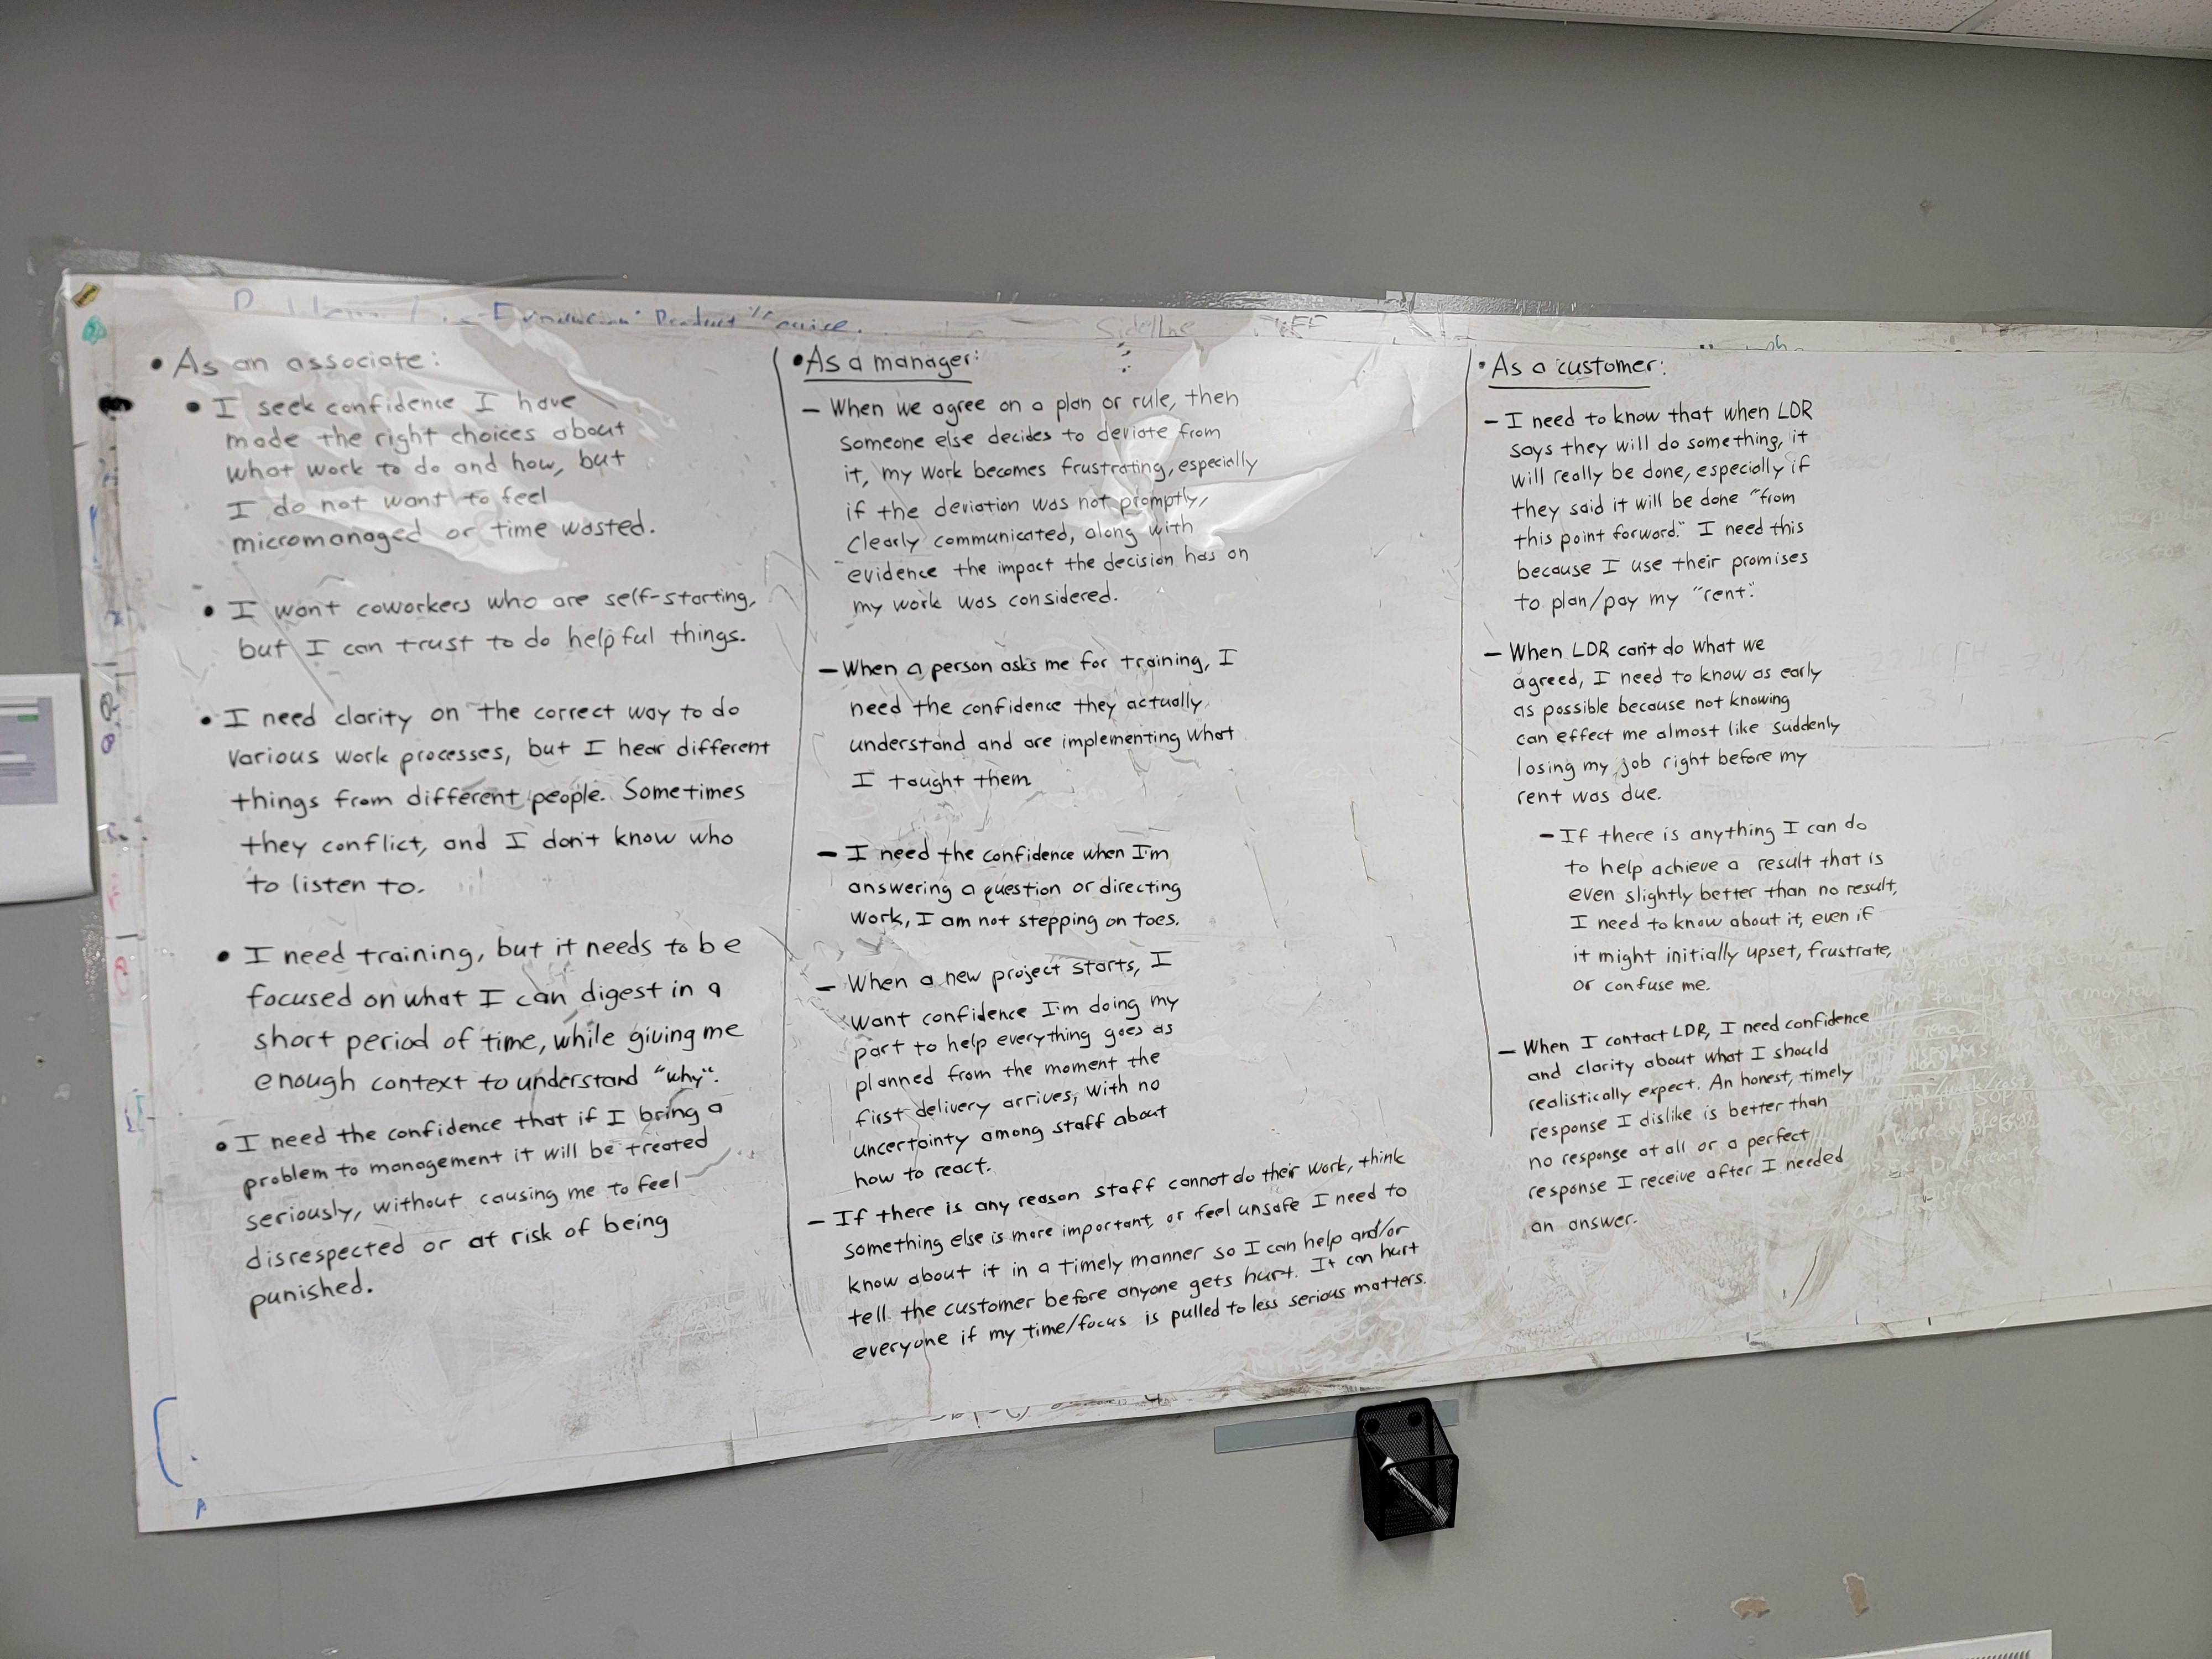 Product
Sideline
• As an associate:
• I seek confidence I have
made the right choices about
what work to do and how, but
I do not want to feel
micromanaged or time wasted.
• I want coworkers who are self-starting,
but I can trust to do helpful things.
• I need clarity on the correct way to do
various work processes, but I hear different
things from different people. Sometimes
they conflict, and I don't know who
to listen to.
• I need training, but it needs to be
focused on what I can digest in a
short period of time, while giving me
enough context to understand "why".
• I need the confidence that if I bring a
problem to management it will be treated
seriously, without causing me to feel
disrespected or at risk of being
punished.
• As a manager:
- When we agree on a plan or rule, then
someone else decides to deviate from
it, my work becomes frustrating, especially
if the deviation was not promptly,
clearly communicated, along with
evidence the impact the decision has on
my work was considered.
- When a person asks me for training, I
need the confidence they actually
understand and are implementing what
I taught them.
- I need the confidence when I'm
answering a question or directing
work, I am not stepping on toes.
- When a new project starts, I
want confidence I'm doing my
part to help everything goes as
planned from the moment the
first delivery arrives, with no
uncertainty among staff about
how to react.
- If there is any reason staff cannot do their work, think
something else is more important, or feel unsafe I need to
know about it in a timely manner so I can help and/or
tell the customer before anyone gets hurt. It can hurt
everyone if my time/focus is pulled to less serious matters.
• As a customer:
- I need to know that when LDR
says they will do something, it
will really be done, especially if
they said it will be done "from
this point forward." I need this
because I use their promises
to plan/pay my "rent".
- When LDR can't do what we
agreed, I need to know as early
as possible because not knowing
can effect me almost like suddenly
losing my job right before my
rent was due.
- If there is anything I can do
to help achieve a result that is
even slightly better than no result,
I need to know about it, even if
it might initially upset, frustrate,
or confuse me.
- When I contact LDR, I need confidence
and clarity about what I should
realistically expect. An honest, timely
response I dislike is better than
no response at all or a perfect
response I receive after I needed
an answer.